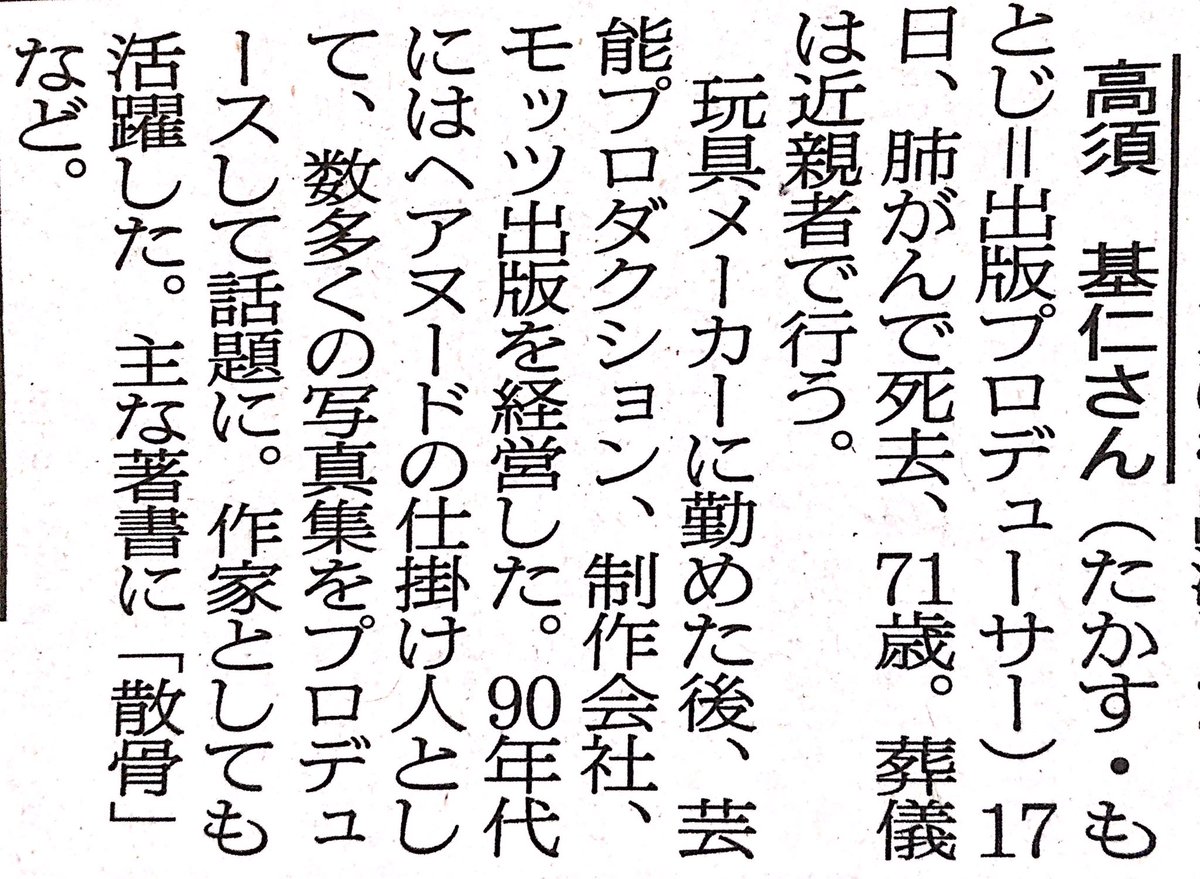 高須　基仁さん（たかす・も
とじ＝出版プロデューサー）17
日、肺がんで死去、71歳。葬儀
は近親者で行う。
玩具メーカーに勤めた後、芸
能プロダクション、制作会社、
モッツ出版を経営した。90年代
にはヘアヌードの仕掛け人とし
て、数多くの写真集をプロデュ
ースして話題に。作家としても
活躍した。主な著書に「散骨」
など。